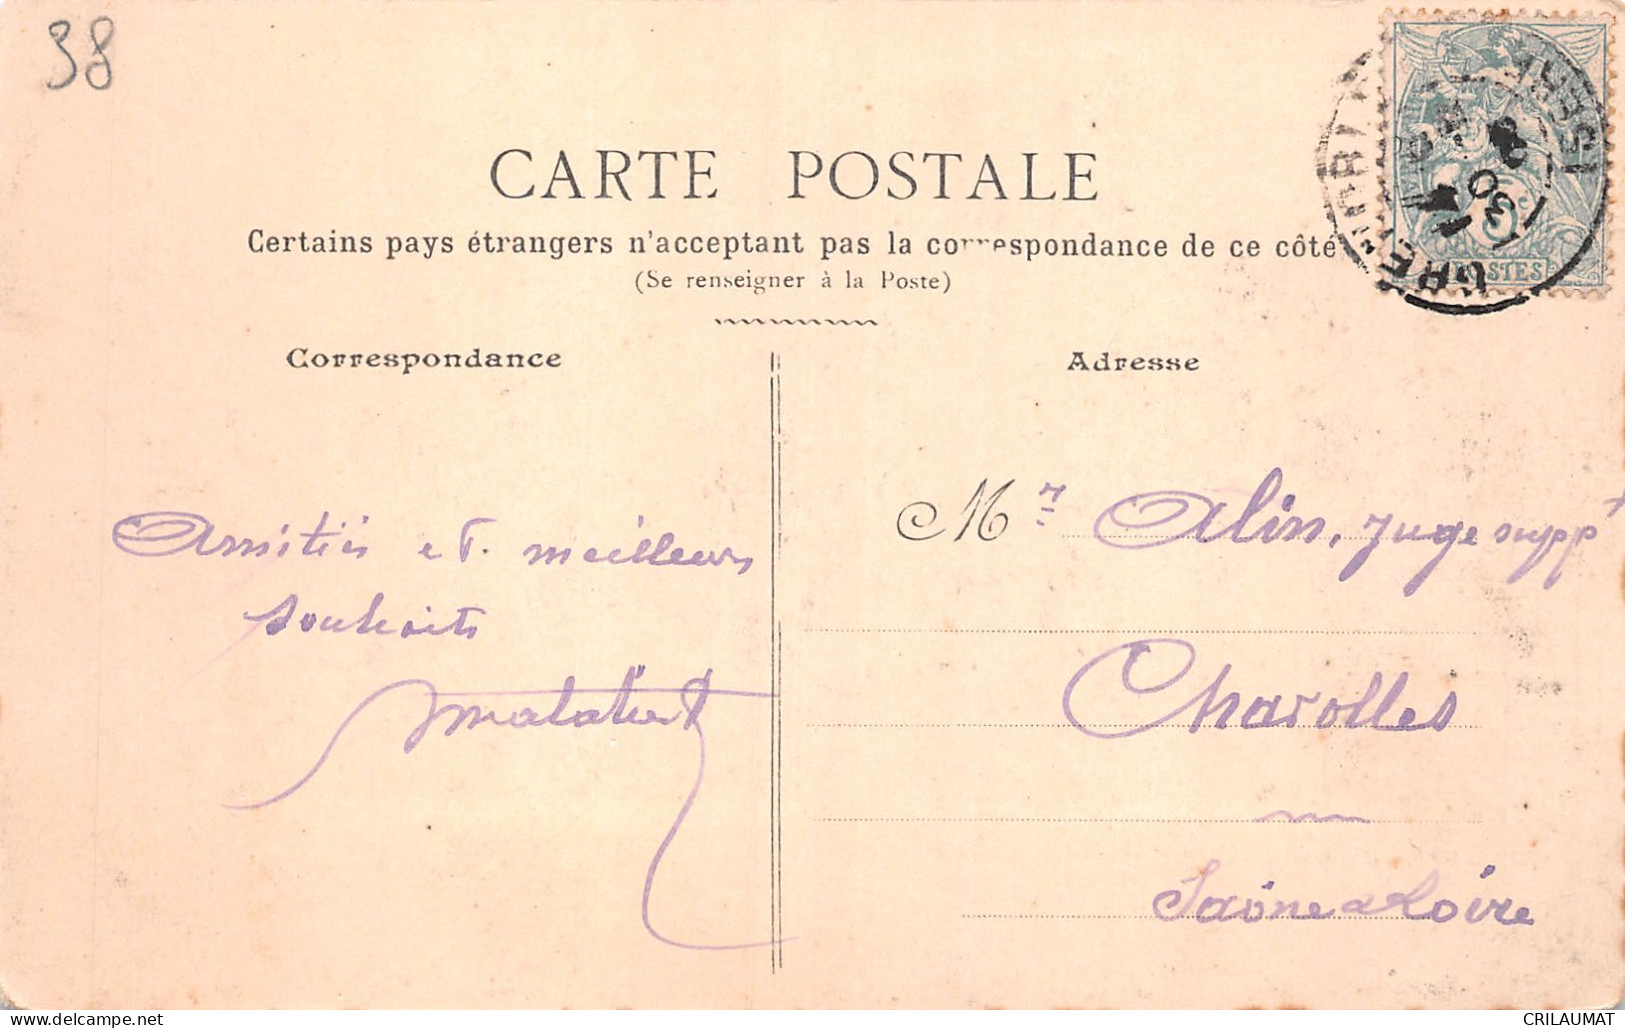 38
CARTE POSTALE
Certains pays étrangers n'acceptant pas la correspondance de ce côté
(Se renseigner à la Poste)
Correspondance
Adresse
GRENOBLE
ISERE
POSTES
Mr Alin, Juge suppt
Amitiés et meilleurs
souhaits
Charolles
Saône & Loire
CRILAUMAT